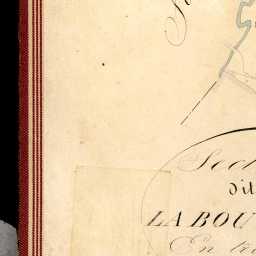 S
Sect
Dit
LA BOU
En tr